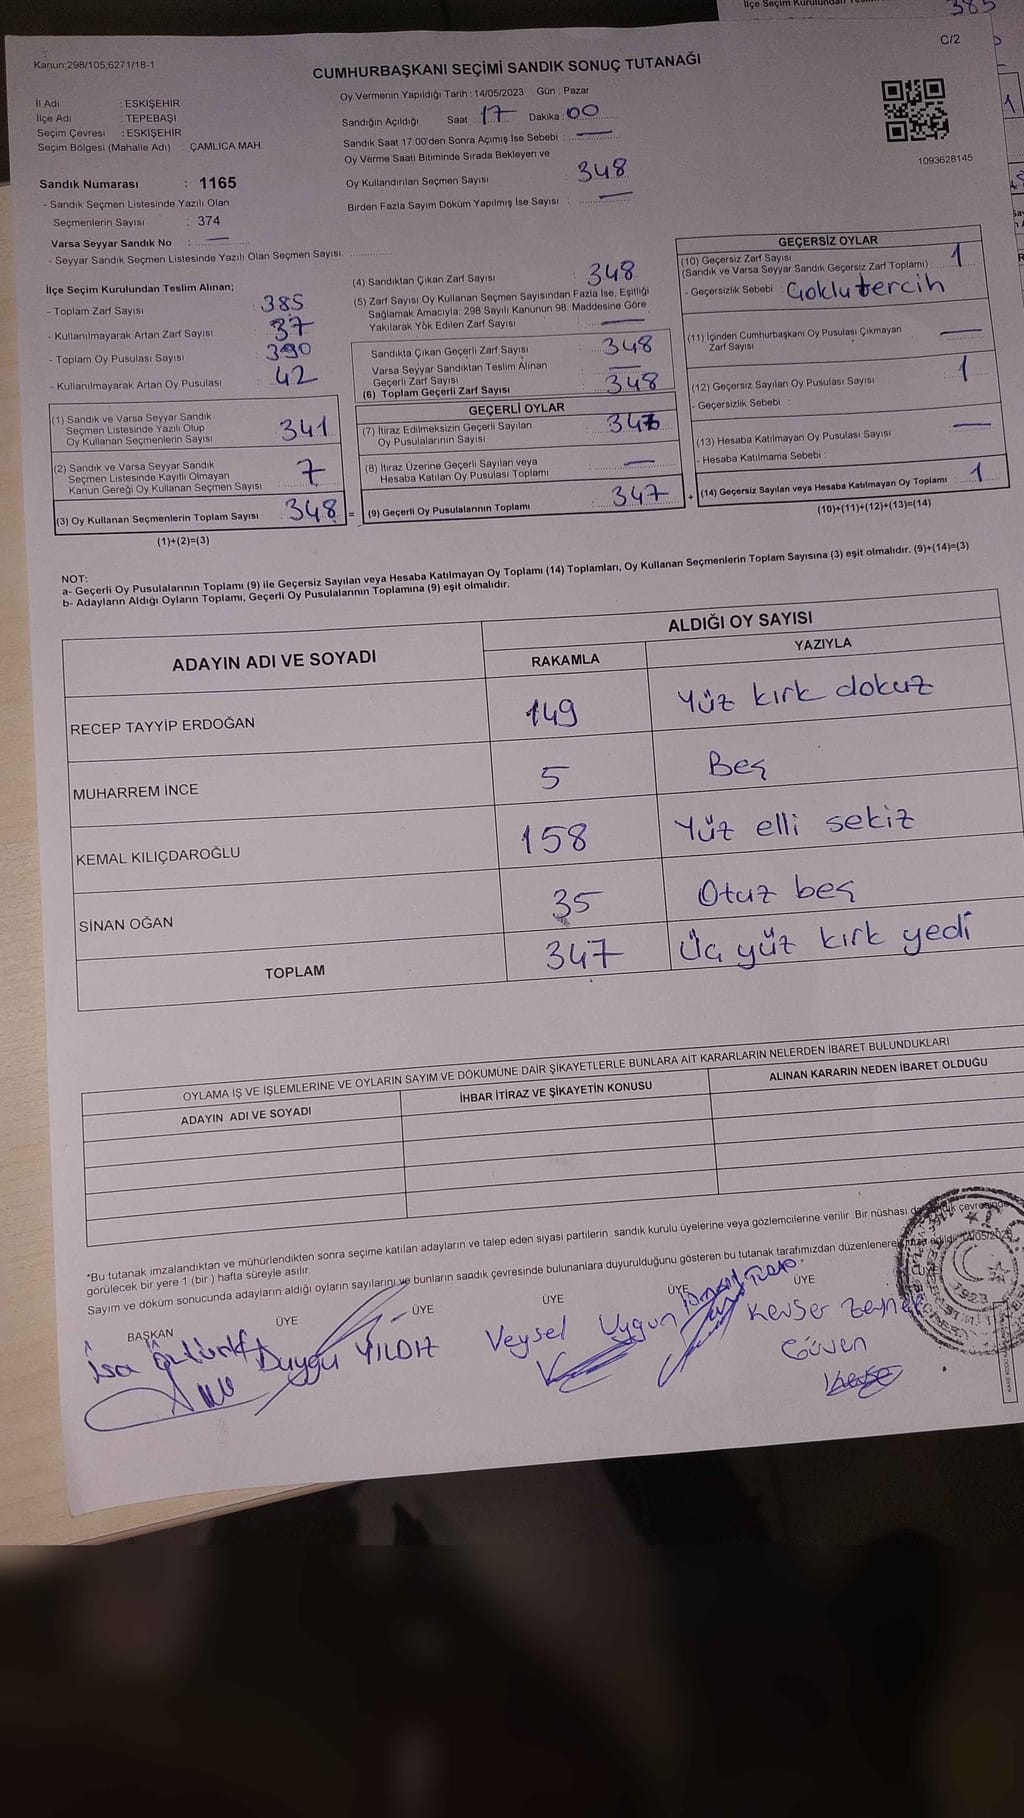 İlçe Seçim Kurulundan
385
C/2
Kanun;298/105,6271/18-1
CUMHURBAŞKANI SEÇİMİ SANDIK SONUÇ TUTANAĞI
İl Adı : ESKİŞEHİR
İlçe Adı : TEPEBAŞI
Seçim Çevresi : ESKİŞEHİR
Seçim Bölgesi (Mahalle Adı) : ÇAMLICA MAH.
Oy Vermenin Yapıldığı Tarih : 14/05/2023 Gün : Pazar
Sandığın Açıldığı Saat : 17 Dakika : 00
Sandık Saat 17:00'den Sonra Açımış İse Sebebi : —
Oy Verme Saati Bitiminde Sırada Bekleyen ve
Oy Kullandırılan Seçmen Sayısı : 348
Birden Fazla Sayım Döküm Yapılmış İse Sayısı : —
1093628145
Sandık Numarası : 1165
- Sandık Seçmen Listesinde Yazılı Olan
Seçmenlerin Sayısı : 374
Varsa Seyyar Sandık No : —
- Seyyar Sandık Seçmen Listesinde Yazılı Olan Seçmen Sayısı:
İlçe Seçim Kurulundan Teslim Alınan;
- Toplam Zarf Sayısı : 385
- Kullanılmayarak Artan Zarf Sayısı : 37
- Toplam Oy Pusulası Sayısı : 390
- Kullanılmayarak Artan Oy Pusulası : 42
(1) Sandık ve Varsa Seyyar Sandık
Seçmen Listesinde Yazılı Olup
Oy Kullanan Seçmenlerin Sayısı : 341
(2) Sandık ve Varsa Seyyar Sandık
Seçmen Listesinde Kayıtlı Olmayan
Kanun Gereği Oy Kullanan Seçmen Sayısı : 7
(3) Oy Kullanan Seçmenlerin Toplam Sayısı : 348 =
(1)+(2)=(3)
(4) Sandıktan Çıkan Zarf Sayısı : 348
(5) Zarf Sayısı Oy Kullanan Seçmen Sayısından Fazla İse, Eşitliği
Sağlamak Amacıyla; 298 Sayılı Kanunun 98. Maddesine Göre
Yakılarak Yok Edilen Zarf Sayısı : —
Sandıkta Çıkan Geçerli Zarf Sayısı : 348
Varsa Seyyar Sandıktan Teslim Alınan
Geçerli Zarf Sayısı : —
(6) Toplam Geçerli Zarf Sayısı : 348
GEÇERLİ OYLAR
(7) İtiraz Edilmeksizin Geçerli Sayılan
Oy Pusulalarının Sayısı : 347
(8) İtiraz Üzerine Geçerli Sayılan veya
Hesaba Katılan Oy Pusulası Toplamı : —
(9) Geçerli Oy Pusulalarının Toplamı : 347 +
GEÇERSİZ OYLAR
(10) Geçersiz Zarf Sayısı
(Sandık ve Varsa Seyyar Sandık Geçersiz Zarf Toplamı) : 1
- Geçersizlik Sebebi : Çoklu tercih
(11) İçinden Cumhurbaşkanı Oy Pusulası Çıkmayan
Zarf Sayısı : —
(12) Geçersiz Sayılan Oy Pusulası Sayısı : 1
- Geçersizlik Sebebi :
(13) Hesaba Katılmayan Oy Pusulası Sayısı : —
- Hesaba Katılmama Sebebi :
(14) Geçersiz Sayılan veya Hesaba Katılmayan Oy Toplamı : 1
(10)+(11)+(12)+(13)=(14)
NOT:
a- Geçerli Oy Pusulalarının Toplamı (9) ile Geçersiz Sayılan veya Hesaba Katılmayan Oy Toplamı (14) Toplamları, Oy Kullanan Seçmenlerin Toplam Sayısına (3) eşit olmalıdır. (9)+(14)=(3)
b- Adayların Aldığı Oyların Toplamı, Geçerli Oy Pusulalarının Toplamına (9) eşit olmalıdır.
ADAYIN ADI VE SOYADI
ALDIĞI OY SAYISI
RAKAMLA YAZIYLA
RECEP TAYYİP ERDOĞAN 149 Yüz kırk dokuz
MUHARREM İNCE 5 Beş
KEMAL KILIÇDAROĞLU 158 Yüz elli sekiz
SİNAN OĞAN 35 Otuz beş
TOPLAM 347 Üç yüz kırk yedi
OYLAMA İŞ VE İŞLEMLERİNE VE OYLARIN SAYIM VE DÖKÜMÜNE DAİR ŞİKAYETLERLE BUNLARA AİT KARARLARIN NELERDEN İBARET BULUNDUKLARI
ADAYIN ADI VE SOYADI İHBAR İTİRAZ VE ŞİKAYETİN KONUSU ALINAN KARARIN NEDEN İBARET OLDUĞU
*Bu tutanak imzalandıktan ve mühürlendikten sonra seçime katılan adayların ve talep eden siyasi partilerin sandık kurulu üyelerine veya gözlemcilerine verilir. Bir nüshası çevresinde
görülecek bir yere 1 (bir) hafta süreyle asılır.
Sayım ve döküm sonucunda adayların aldığı oyların sayılarını ve bunların sandık çevresinde bulunanlara duyurulduğunu gösteren bu tutanak tarafımızdan düzenlenerek
BAŞKAN ÜYE ÜYE ÜYE ÜYE ÜYE
İsa Öztürk Duygu YILDIZ Veysel Uygun Kevser Zeynep
Güven
1923